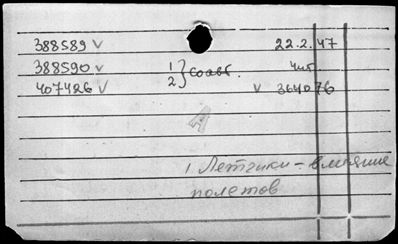 388589 v 22.2.47
388590 v 1 } соавт. 4шт
407426 v 2 v 364076
1 Летчики - влияние
полетов